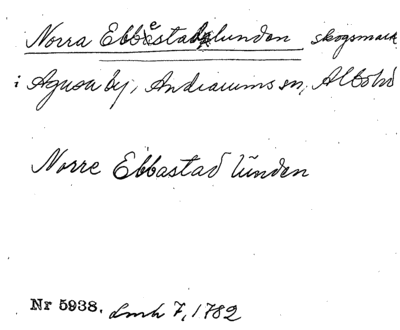 Norra Ebbestadslunden, skogsmark
i Agusa by, Andrarums sn, Albo hd
Norre Ebbastad lünden
Nr 5938. Lmh 7, 1782